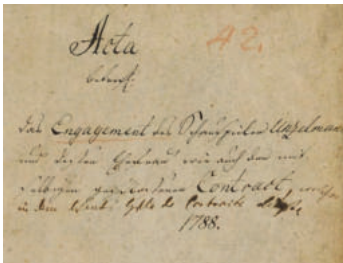 Acta 42.
betreff:
das Engagement des Schauspieler Unzelmann
und dessen Ehefrau wie auch der mit
selbigen geschlossene Contract,
in dem
1788.